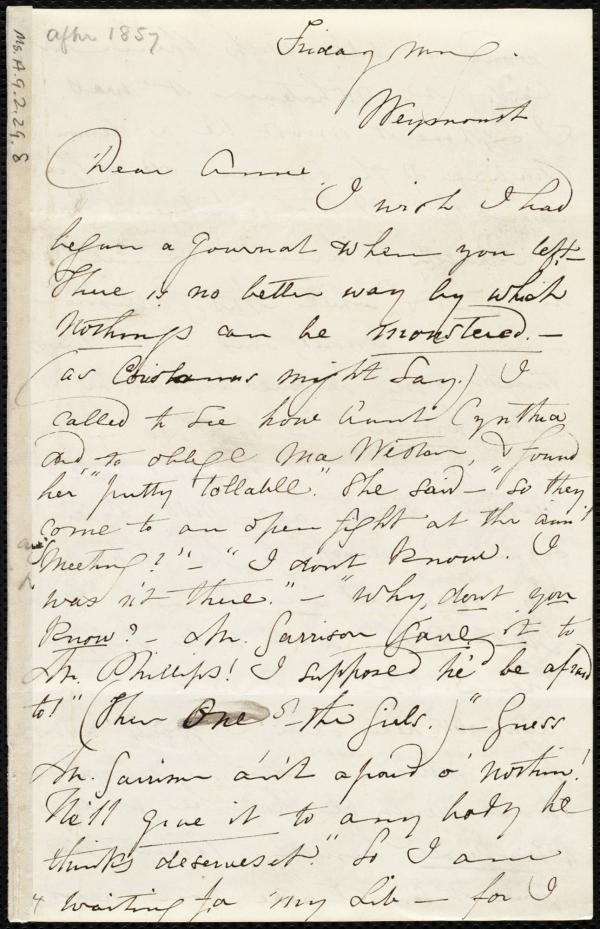 after 1857
Ms. A. 9. 2. 29. 8
Friday morng.
Weymouth
Dear Anne.
I wish I had
begun a journal when you left.
There is no better way by which
Nothings can be monstered. —
(as Coriolanus might say.) I
called to see how Aunt Cynthia
and to oblige Ma Weston, & found
her "putty tollable". She said — "So they
come to an open fight at the ann'l
Meeting?" — "I dont know. I
was n't there." — "Why, dont you
know? — Mr. Garrison gave it to
Mr. Phillips! I supposed he'd be afraid
to!" (Then One o' the girls.) — "Guess
Mr. Garrison ain't afraid o' nothin!
He'll give it to any body he
thinks deserves it." So I am
waiting for my Lib — for I
4